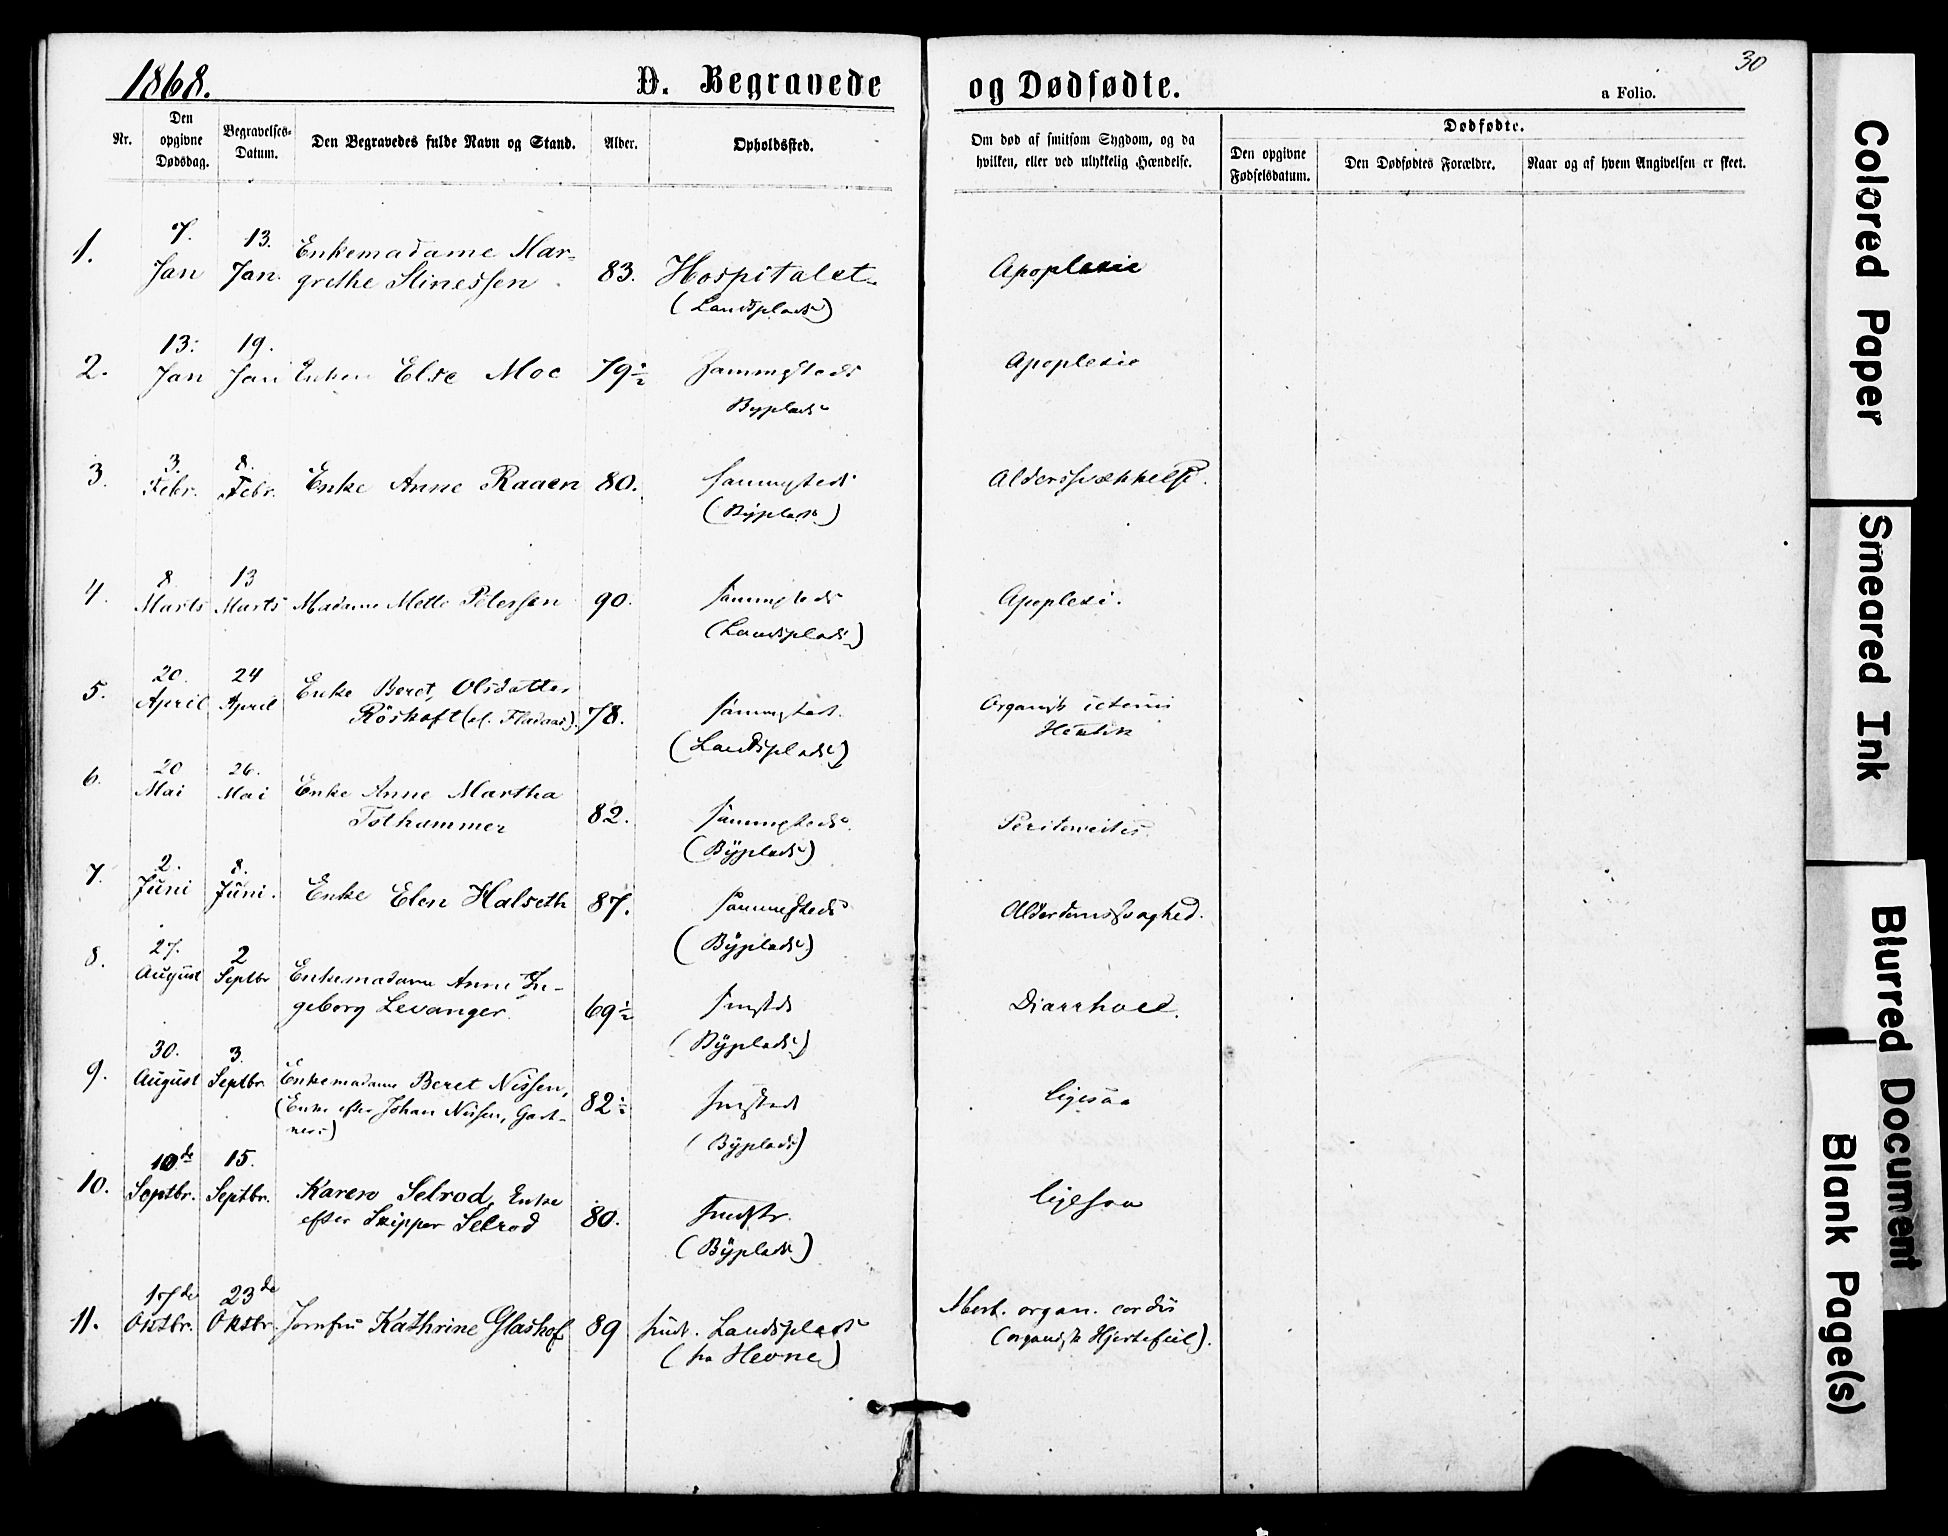 1868.
D. Begravede og Dødfødte.
30
a Folio.
Nr.
Den opgivne Dødsdag.
Begravelses-Datum.
Den Begravedes fulde Navn og Stand.
Alder.
Opholdssted.
Om død af smitsom Sygdom, og da hvilken, eller ved ulykkelig Hændelse.
Dødfødte.
Den opgivne Fødselsdatum.
Den Dødfødtes Forældre.
Naar og af hvem Angivelsen er skeet.
1. 7. Jan 13. Jan. Enkemadame Mar-
grethe Stinessen 83. Hospitalet Apoplexie
(Landsplads)
2. 13. Jan 19. Jan Enken Else Moe 79½ Sammesteds Apoplexie
Byplads
3. 3. Febr. 8. Febr. Enke Anne Raaen 80. Sammesteds Alderssvækkelse.
(Byplads)
4. 8. Marts 13 Marts Madame Mette Petersen 90. sammesteds Apoplexi.
(Landsplads)
5. 20. April 24 April Enke Beret Olsdatter
Röskaft 78. sammested. Organisk
(Landsplads)
6. 20 Mai 26. Mai Enke Anne Martha
Tolhammer 82. sammesteds. Peritonitis.
(Byplads)
7. 2. Juni 8. Juni. Enke Elen Halseth 87. sammesteds Alderdomssvaghed.
(Byplads)
8. 27. August 2 Septbr Enkemadame Anne In-
geborg Levanger. 69½ smsteds Diarrhoee.
(Byplads)
9. 30. August 3. Septbr. Enkemadame Beret Nissen,
(Enke efter Johan Nissen, Gart-
ner) 82½ smsteds ligesaa
(Byplads)
10. 10de Septbr. 15. Septbr. Karen Selrod, Enke
efter Skipper Selrod 80. smstds. ligesaa
(Byplads)
11. 17de Oktbr. 23de Oktbr. Jomfru Kathrine Glashof 89 smst. Landsplads Morb. organ. cordis
(fra Hevne) (organisk Hjertefeil).
Colored Paper
Smeared Ink
Blurred Document
Blank Page(s)